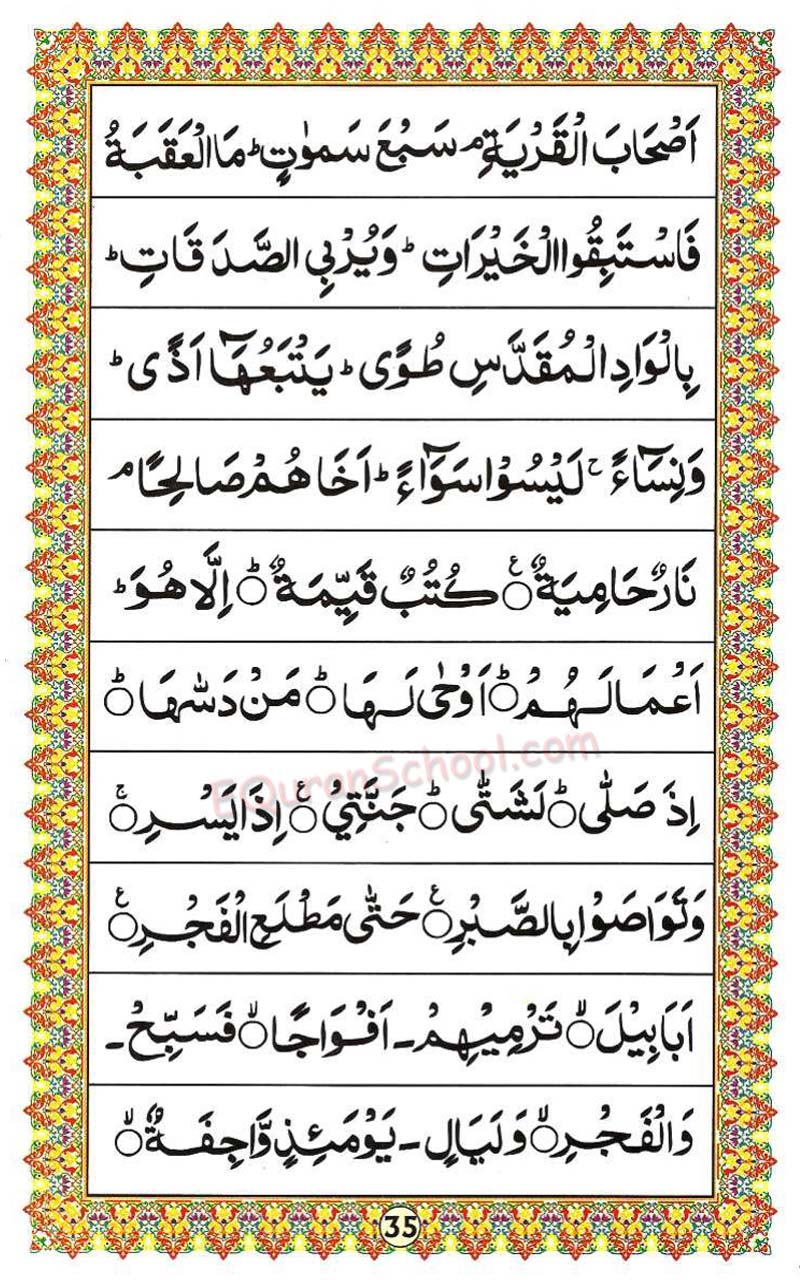 اَصْحَابَ الْقَرْيَةِ ۘ سَبْعَ سَمٰوٰتٍ ؕ مَا الْعَقَبَةُ
فَاسْتَبِقُوا الْخَيْرَاتِ ؕ وَيُرْبِي الصَّدَقَاتِ ؕ
بِالْوَادِ الْمُقَدَّسِ طُوًى ؕ يَتْبَعُهَآ اَذًى ؕ
وَنِسَآءً ۚ لَيْسُوْا سَوَآءً ؕ اَخَاهُمْ صَالِحًا ۘ
نَارٌ حَامِيَةٌ ۝ ع كُتُبٌ قَيِّمَةٌ ۝ؕ اِلَّا هُوَ ؕ
اَعْمَالَهُمْ ۝ؕ اَوْحٰى لَهَا ۝ؕ مَنْ دَسّٰىهَا ۝ؕ
EQuranSchool.com
اِذَ صَلّٰى ۝ؕ لَشَتّٰى ۝ؕ جَنَّتِيْ ۝ ع اِذَا يَسْرِ ۝ۚ
وَتَوَاصَوْا بِالصَّبْرِ ۝ ع حَتّٰى مَطْلَعِ الْفَجْرِ ۝ ع
اَبَابِيْلَ ۝ۙ تَرْمِيْهِمْ ۔ اَفْوَاجًا ۝ۙ فَسَبِّحْ ۔
وَالْفَجْرِ ۝ۙ وَلَيَالٍ ۔ يَوْمَئِذٍ وَّاجِفَةٌ ۝ۙ
35